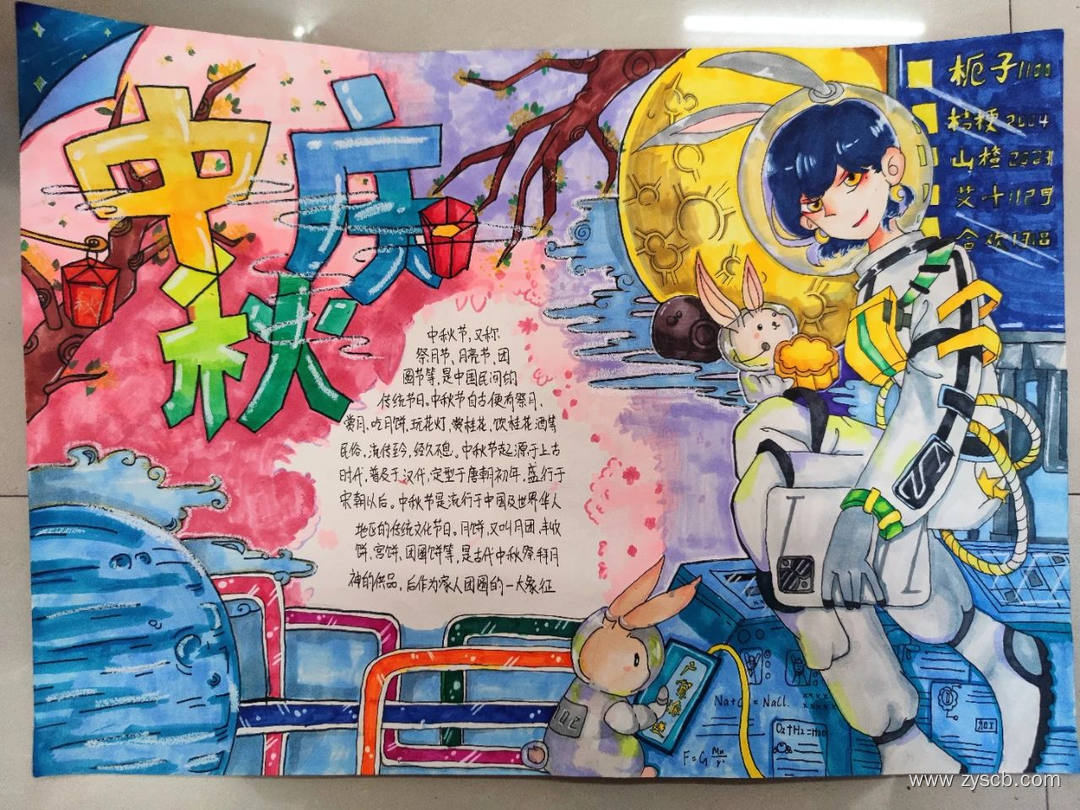 庆
中
秋
栀子1100
桔梗2004
山楂2003
艾十112号
合欢1918
中秋节,又称
祭月节、月亮节、团
圆节等,是中国民间的
传统节日。中秋节自古便有祭月、
赏月、吃月饼、玩花灯、赏桂花、饮桂花酒等
民俗,流传至今,经久不息。中秋节起源于上古
时代,普及于汉代,定型于唐朝初年,盛行于
宋朝以后。中秋节是流行于中国及世界华人
地区的传统文化节日。月饼,又叫月团、丰收
饼、宫饼、团圆饼等,是古代中秋祭拜月
神的供品,后作为家人团圆的一大象征
= NaCl.
O₂+H₂=H₂O
F=G
www.zyscb.com